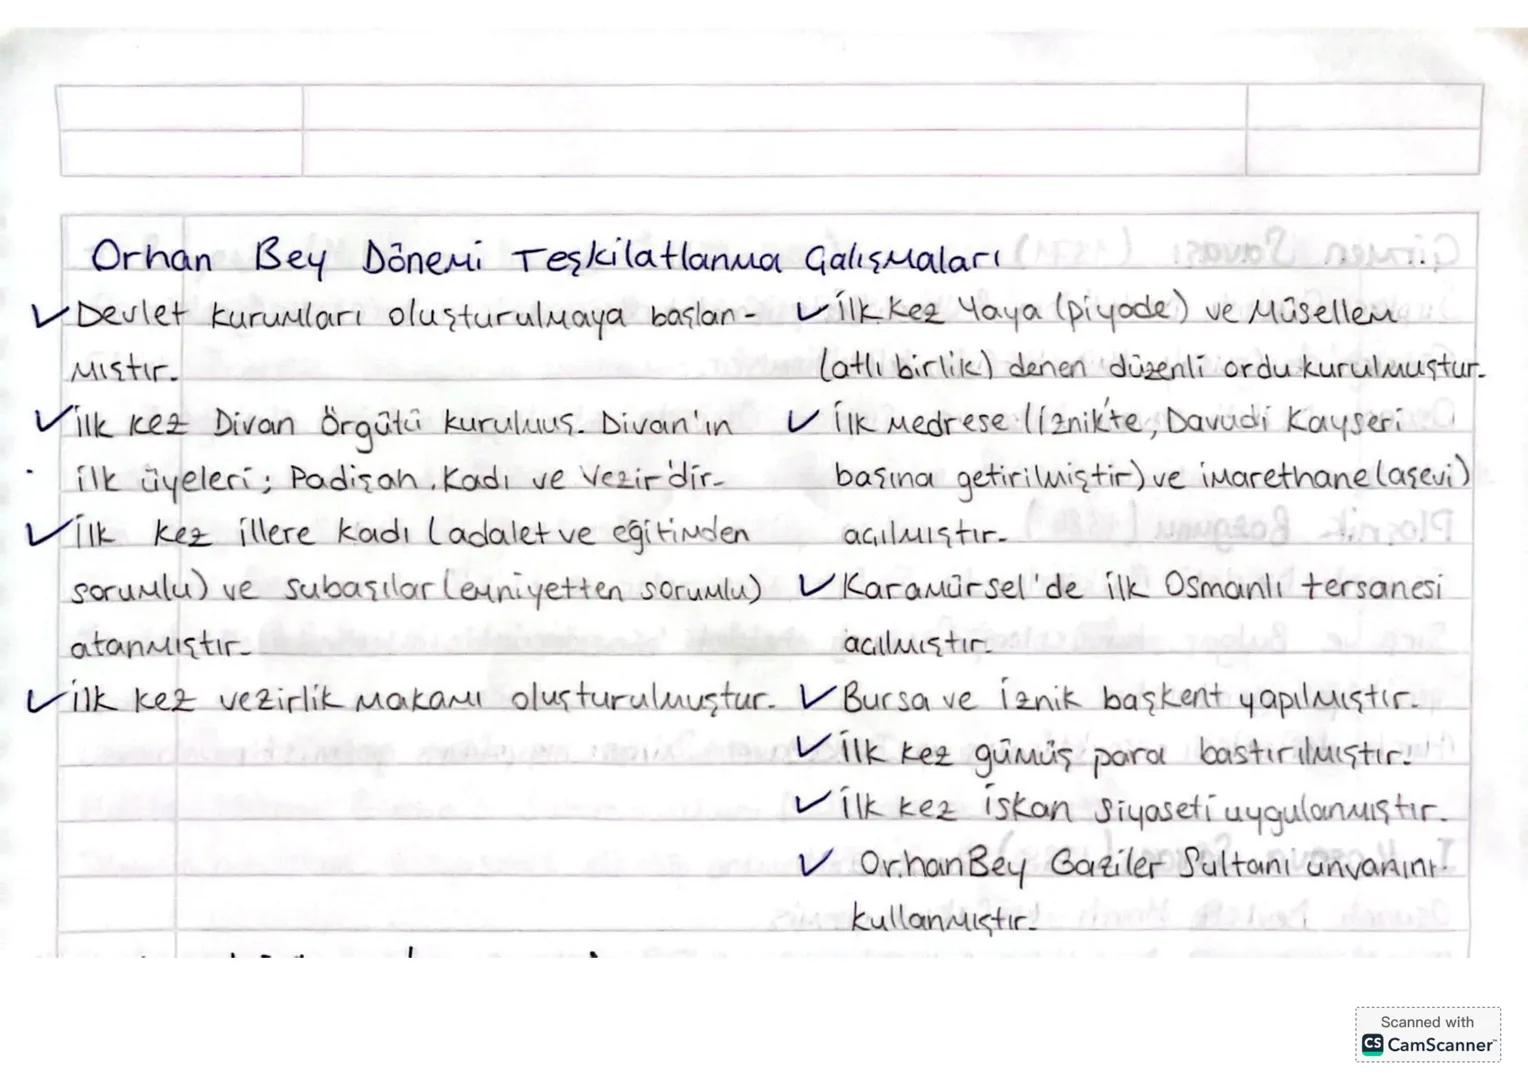 Orhan Bey Dönemi Teşkilatlanma Çalışmaları
✓ Devlet kurumları oluşturulmaya başlan-
mıştır.
✓ ilk kez Divan Örgütü kurulmuş. Divan'ın
ilk üyeleri; Padişah, Kadı ve Vezir'dir.
✓ İlk kez illere kadı (adalet ve eğitimden
sorumlu) ve subaşılar (emniyetten sorumlu)
atanmıştır.
✓ ilk kez vezirlik makamı oluşturulmuştur.
✓ İlk kez Yaya (piyade) ve Müsellem
(atlı birlik) denen düzenli ordu kurulmuştur.
✓ İlk medrese (İznik'te, Davudi Kayseri
başına getirilmiştir) ve imarethane (aşevi)
açılmıştır.
✓ Karamürsel'de ilk Osmanlı tersanesi
açılmıştır.
✓ Bursa ve İznik başkent yapılmıştır.
✓ İlk kez gümüş para bastırılmıştır.
✓ İlk kez iskan siyaseti uygulanmıştır.
✓ Orhan Bey Gaziler Sultanı ünvanını
kullanmıştır.
Scanned with
CS CamScanner